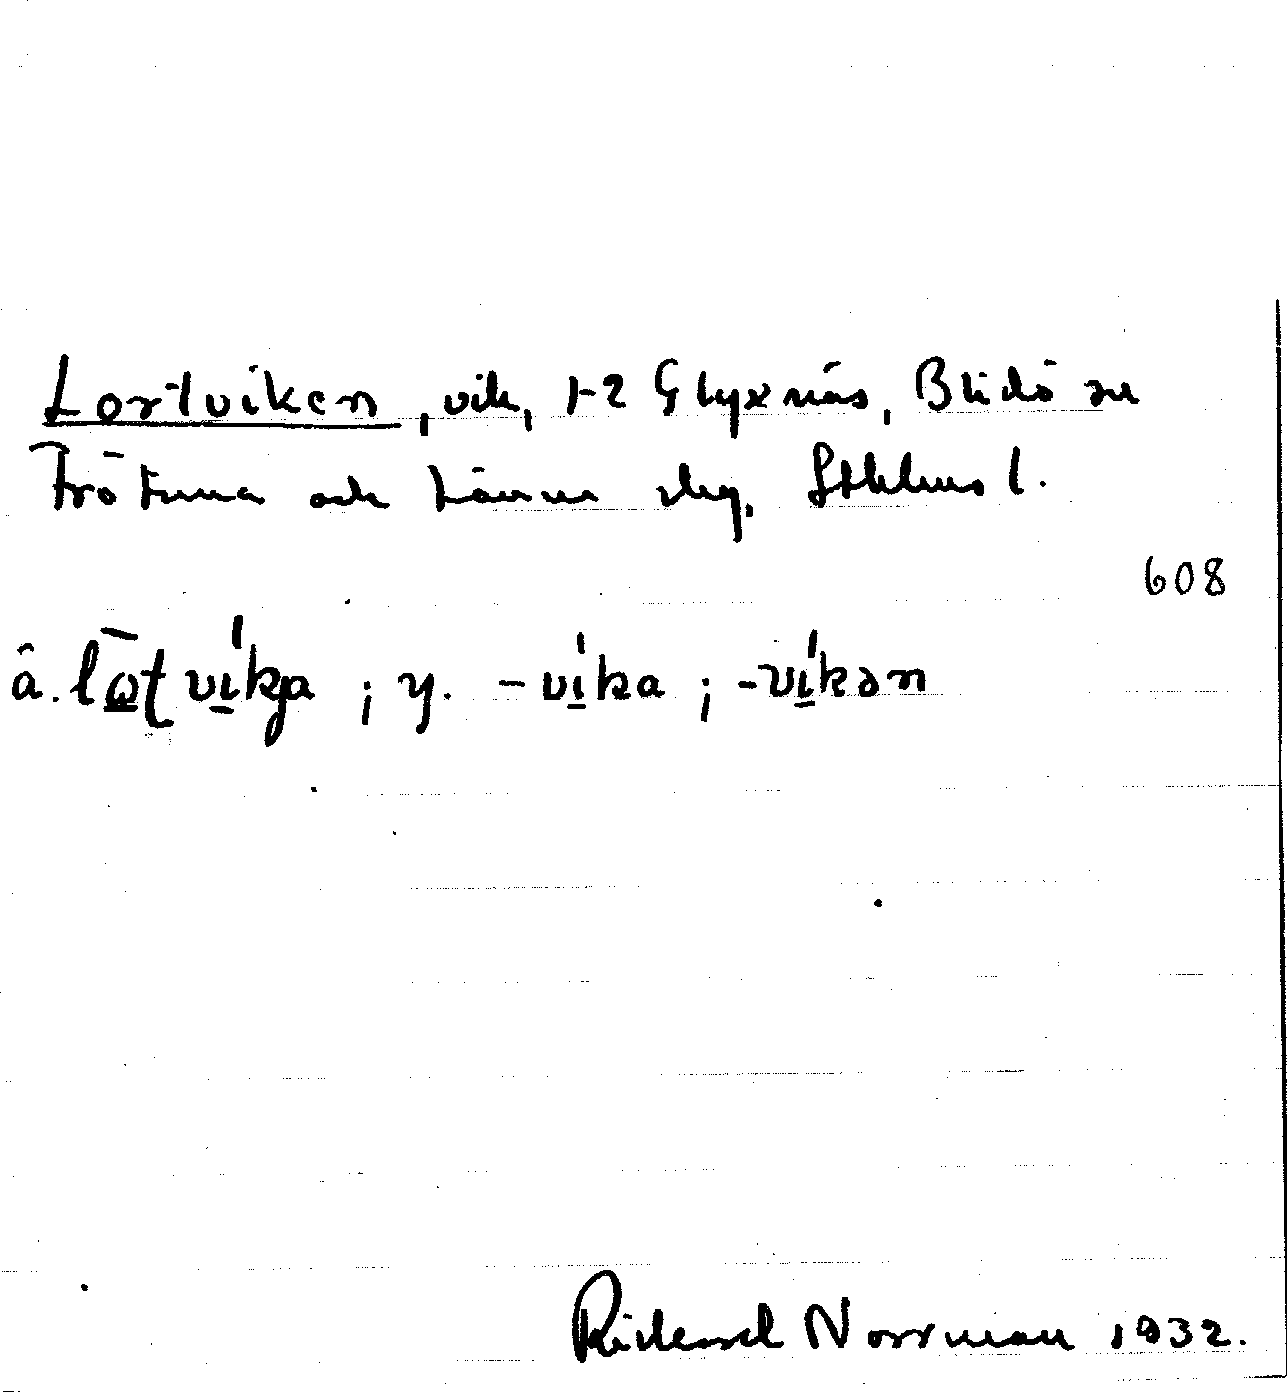 Lortviken, vik, 1-2 Glyxnäs, Blidö sn
Frötuna och Länna slg. Sthlms l.
608
â. lo̠t vi̠kja ; y. -vi̠ka ; -vi̠kən
Rickard Norrman 1932.